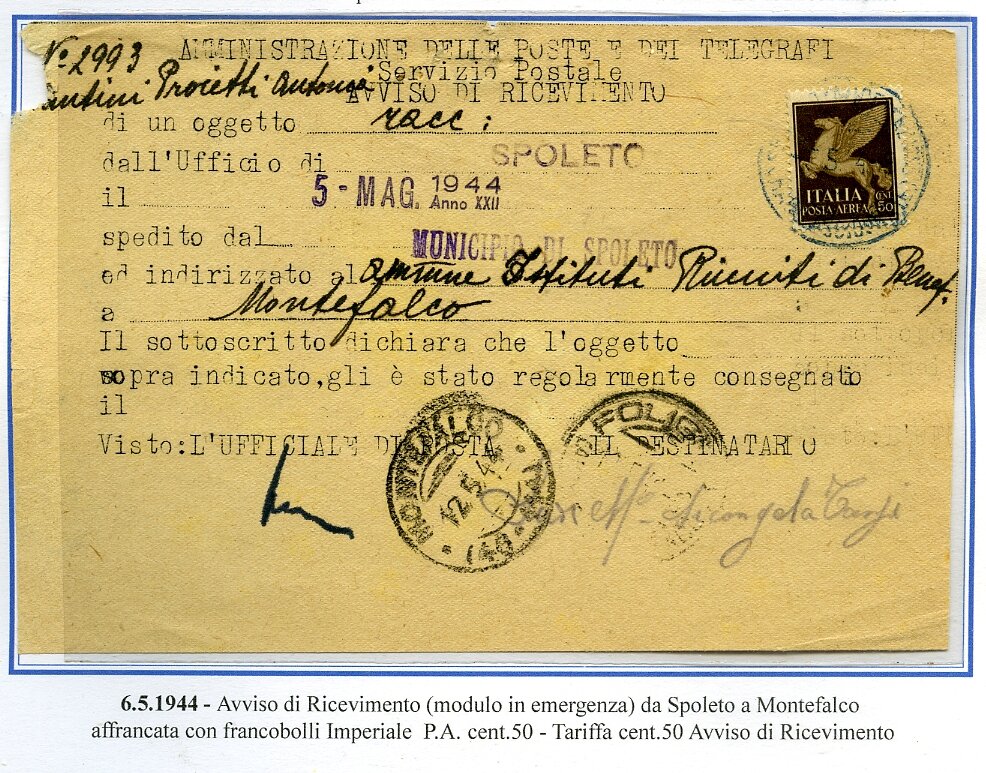 N° 2993 AMMINISTRAZIONE DELLE POSTE E DEI TELEGRAFI
Servizio Postale
Proietti AVVISO DI RICEVIMENTO
di un oggetto racc:
dall'Ufficio di SPOLETO
il 5 - MAG. 1944 Anno XXII
ITALIA
POSTA AEREA CENT 50
spedito dal MUNICIPIO DI SPOLETO
ed indirizzato al Istituti Riuniti di Benef.
a Montefalco
Il sottoscritto dichiara che l'oggetto
sopra indicato,gli è stato regolarmente consegnato
il
Visto:L'UFFICIALE DI POSTA IL DESTINATARIO
MONTEFALCO
12.5.44
FOLIG
6.5.1944 - Avviso di Ricevimento (modulo in emergenza) da Spoleto a Montefalco
affrancata con francobolli Imperiale P.A. cent.50 - Tariffa cent.50 Avviso di Ricevimento